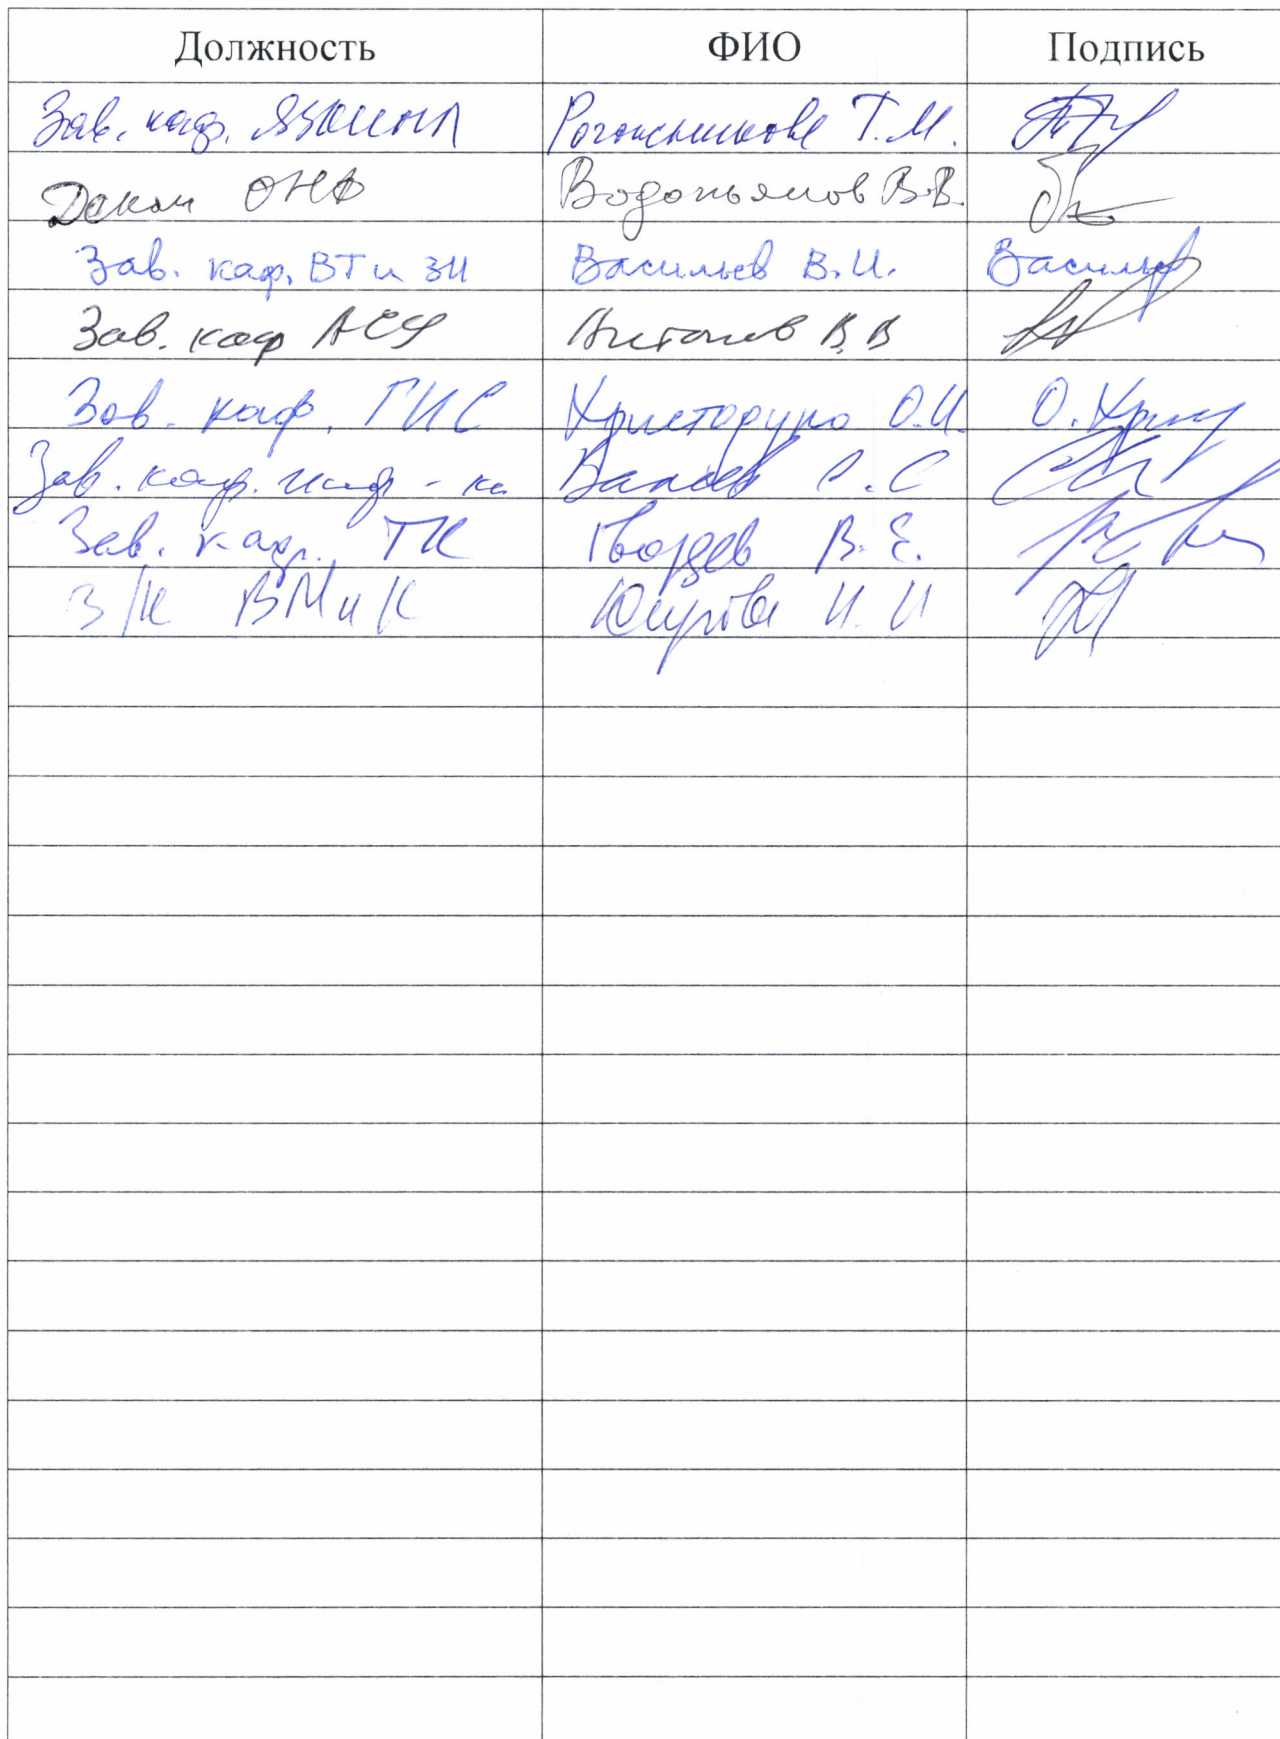 Должность ФИО Подпись
Зав. каф. ЯЗОИНЛ Рогожникова Т.М.
Декан ОНФ Водопьянов В.В.
Зав. каф. ВТ и ЗИ Васильев В.И. Васильев
Зав. каф АСУ Антонов В.В
Зав. каф. ГИС Христодуло О.И. О. Хрис
Зав. каф. инф-ки Валеев С.С
Зав. каф. ТК Гвоздев В.Е.
З/К ВМиК Юнусова И.И